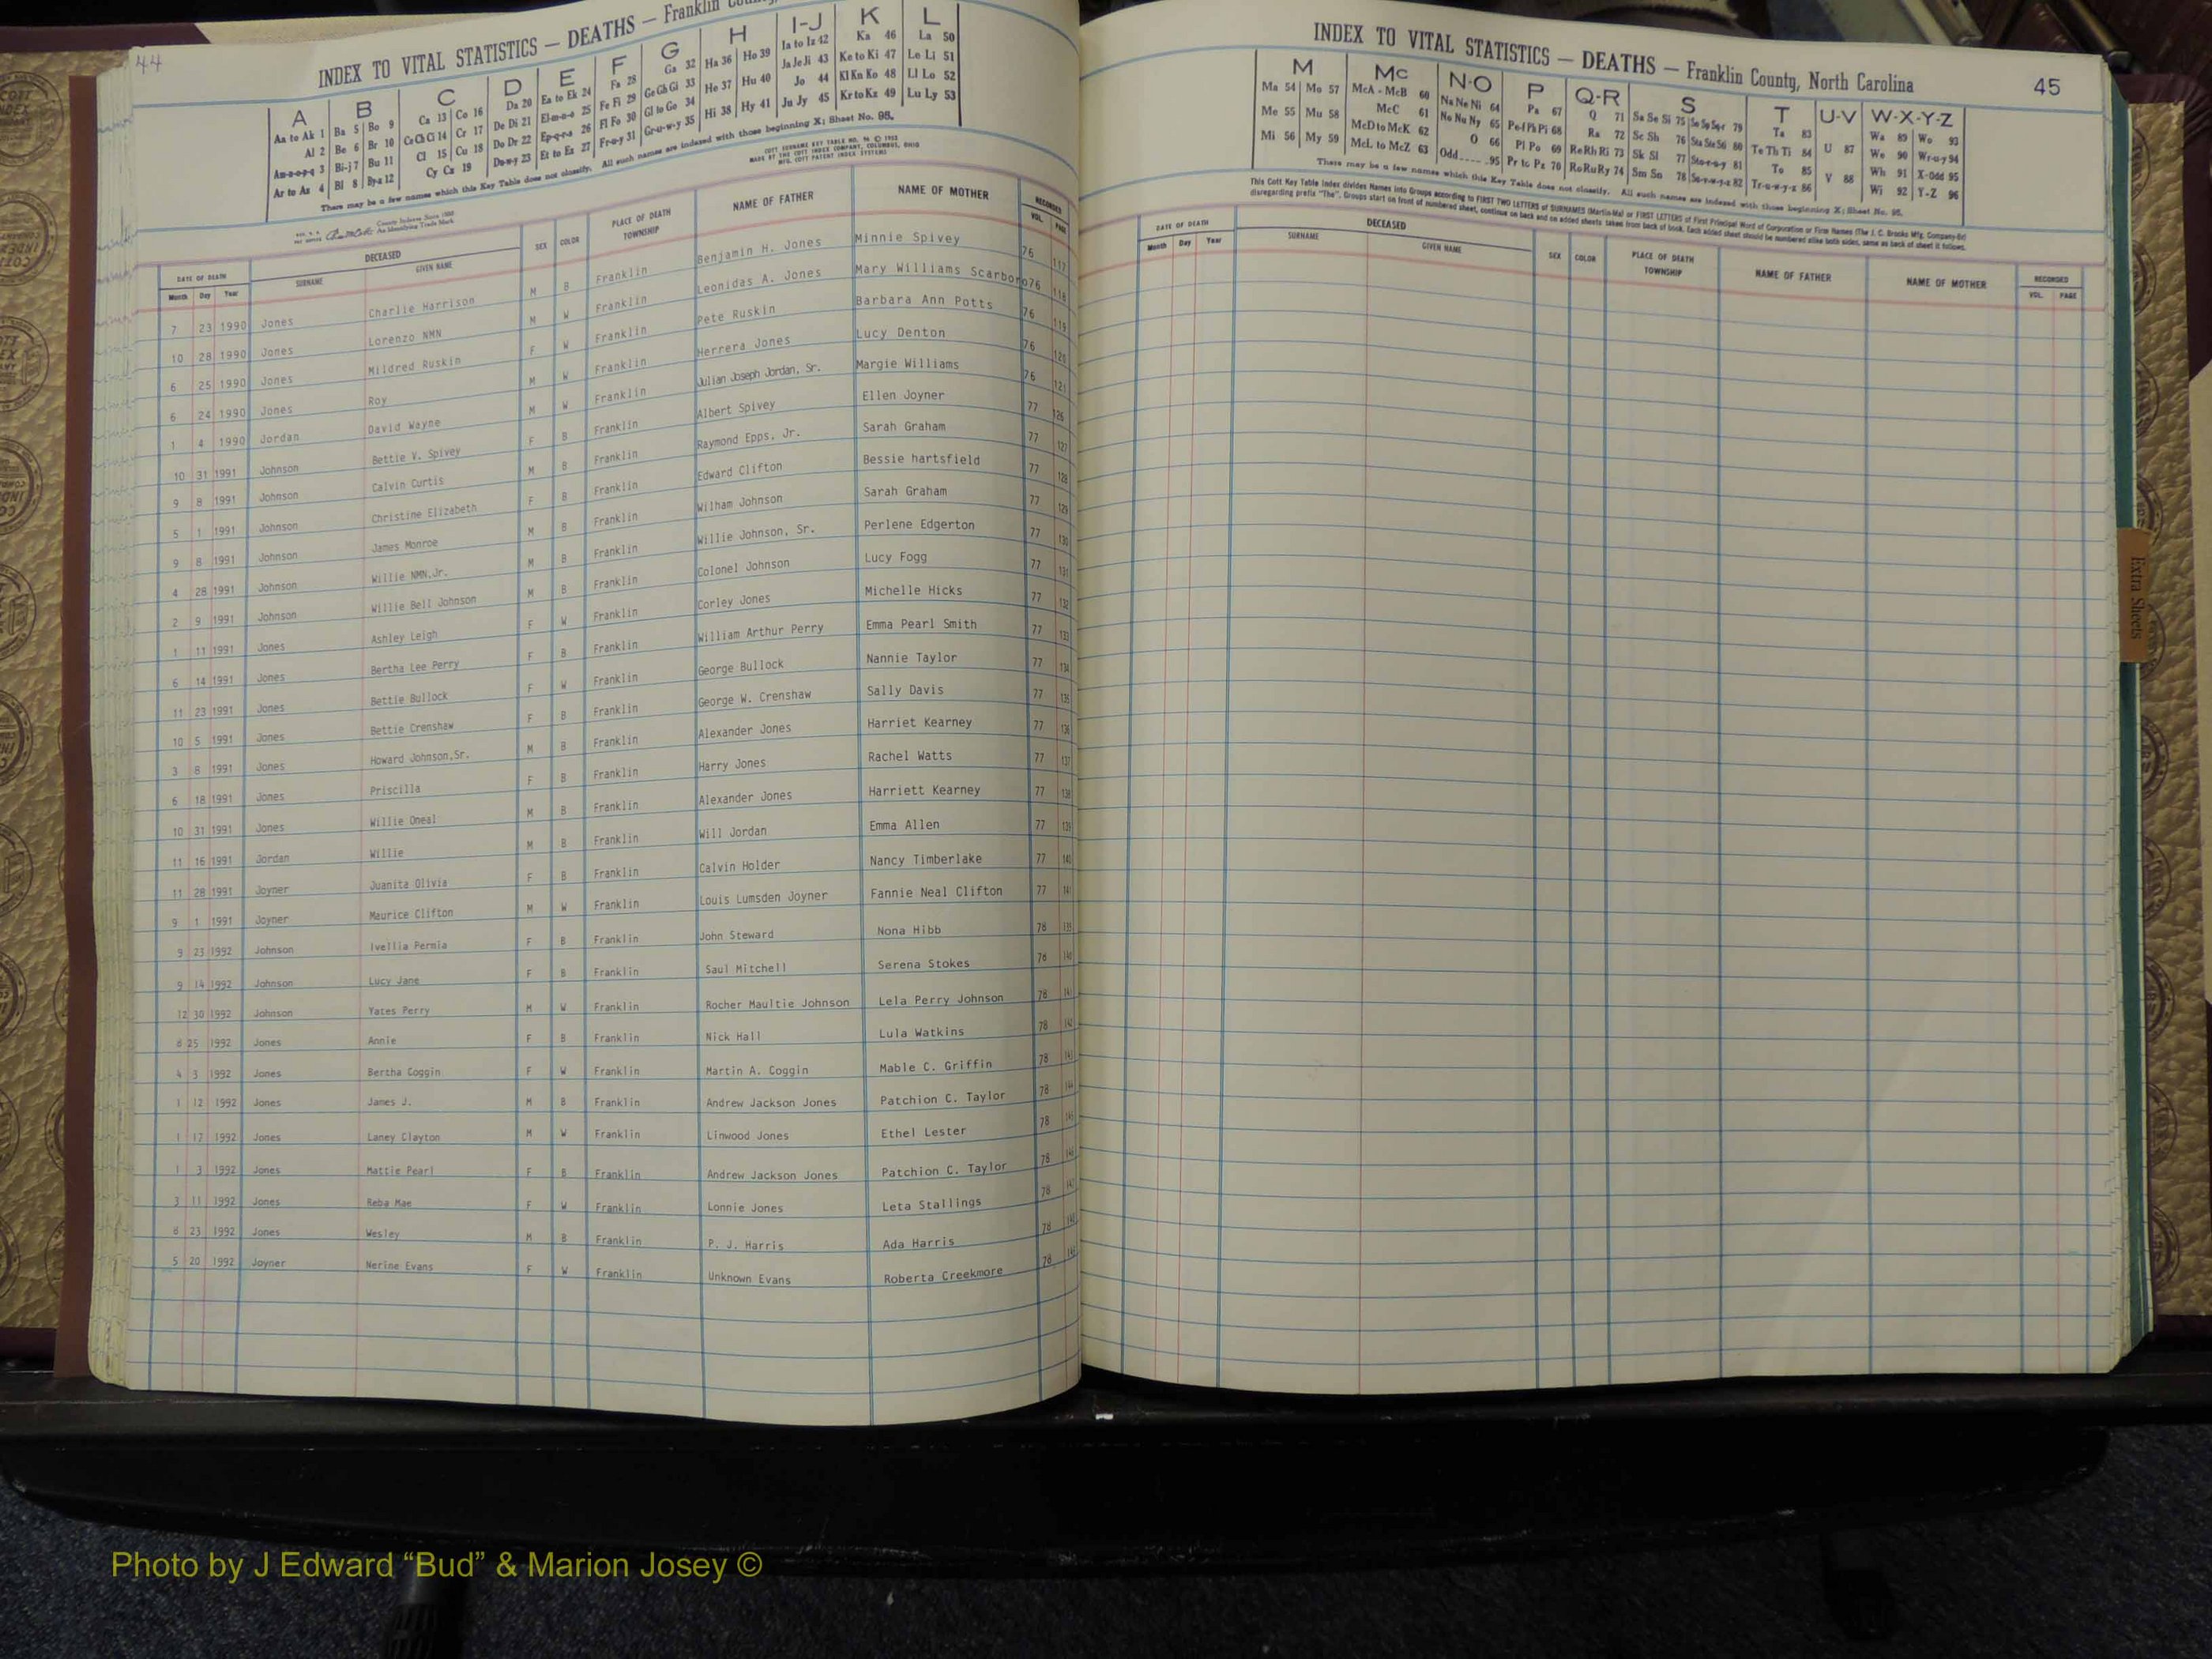 44
INDEX TO VITAL STATISTICS — DEATHS — Franklin
A B C D E F G H I-J K L
Aa to Ak 1 Ba 5 Bo 9 Ca 13 Co 16 Da 20 Ea to Ek 24 Fa 28 Ga 32 Ha 36 Ho 39 Ia to Iz 42 Ka 46 La 50
Al 2 Be 6 Br 10 Ce Ch Ci 14 Cr 17 De Di 21 El-m-n-o 25 Fe Fi 29 Ge Gh Gi 33 He 37 Hu 40 Ja Je Ji 43 Ke to Ki 47 Le Li 51
Am-n-o-p-q 3 Bi-j 7 Bu 11 Cl 15 Cu 18 Do Dr 22 Ep-q-r-s 26 Fl Fo 30 Gl to Go 34 Hi 38 Hy 41 Jo 44 Kl Kn Ko 48 Ll Lo 52
Ar to Az 4 Bl 8 By-z 12 Cy Cz 19 Du-w-y 23 Et to Ez 27 Fr-u-y 31 Gr-u-w-y 35 Ju Jy 45 Kr to Kz 49 Lu Ly 53
There may be a few names which this Key Table does not classify. All such names are indexed with those beginning X; Sheet No. 95.
COTT SURNAME KEY TABLE NO. 96 © 1952
MADE BY THE COTT INDEX COMPANY, COLUMBUS, OHIO
MFG. COTT PATENT INDEX SYSTEMS
County Indexes Since 1888
An Identifying Trade Mark
DATE OF DEATH DECEASED SEX COLOR PLACE OF DEATH TOWNSHIP NAME OF FATHER NAME OF MOTHER RECORDED
Month Day Year SURNAME GIVEN NAME VOL. PAGE
7 23 1990 Jones Charlie Harrison M B Franklin Benjamin H. Jones Minnie Spivey 76 117
10 28 1990 Jones Lorenzo NMN M W Franklin Leonidas A. Jones Mary Williams Scarboro 76 118
6 25 1990 Jones Mildred Ruskin F W Franklin Pete Ruskin Barbara Ann Potts 76 119
6 24 1990 Jones Roy M W Franklin Herrera Jones Lucy Denton 76 120
1 4 1990 Jordan David Wayne M W Franklin Julian Joseph Jordan, Sr. Margie Williams 76 121
10 31 1991 Johnson Bettie V. Spivey F B Franklin Albert Spivey Ellen Joyner 77 126
9 8 1991 Johnson Calvin Curtis M B Franklin Raymond Epps, Jr. Sarah Graham 77 127
5 1 1991 Johnson Christine Elizabeth F B Franklin Edward Clifton Bessie hartsfield 77 128
9 8 1991 Johnson James Monroe M B Franklin Wilham Johnson Sarah Graham 77 129
4 28 1991 Johnson Willie NMN,Jr. M B Franklin Willie Johnson, Sr. Perlene Edgerton 77 130
2 9 1991 Johnson Willie Bell Johnson M B Franklin Colonel Johnson Lucy Fogg 77 131
1 11 1991 Jones Ashley Leigh F W Franklin Corley Jones Michelle Hicks 77 132
6 14 1991 Jones Bertha Lee Perry F B Franklin William Arthur Perry Emma Pearl Smith 77 133
11 23 1991 Jones Bettie Bullock F W Franklin George Bullock Nannie Taylor 77 134
10 5 1991 Jones Bettie Crenshaw F B Franklin George W. Crenshaw Sally Davis 77 135
3 8 1991 Jones Howard Johnson,Sr. M B Franklin Alexander Jones Harriet Kearney 77 136
6 18 1991 Jones Priscilla F B Franklin Harry Jones Rachel Watts 77 137
10 31 1991 Jones Willie Oneal M B Franklin Alexander Jones Harriett Kearney 77 138
11 16 1991 Jordan Willie M B Franklin Will Jordan Emma Allen 77 139
11 28 1991 Joyner Juanita Olivia F B Franklin Calvin Holder Nancy Timberlake 77 140
9 1 1991 Joyner Maurice Clifton M W Franklin Louis Lumsden Joyner Fannie Neal Clifton 77 141
9 23 1992 Johnson Ivellia Permia F B Franklin John Steward Nona Hibb 78 139
9 14 1992 Johnson Lucy Jane F B Franklin Saul Mitchell Serena Stokes 78 140
12 30 1992 Johnson Yates Perry M W Franklin Rocher Maultie Johnson Lela Perry Johnson 78 141
8 25 1992 Jones Annie F B Franklin Nick Hall Lula Watkins 78 142
4 3 1992 Jones Bertha Coggin F W Franklin Martin A. Coggin Mable C. Griffin 78 143
1 12 1992 Jones James J. M B Franklin Andrew Jackson Jones Patchion C. Taylor 78 144
1 17 1992 Jones Laney Clayton M W Franklin Linwood Jones Ethel Lester 78 145
1 3 1992 Jones Mattie Pearl F B Franklin Andrew Jackson Jones Patchion C. Taylor 78 146
3 11 1992 Jones Reba Mae F W Franklin Lonnie Jones Leta Stallings 78 147
8 23 1992 Jones Wesley M B Franklin P. J. Harris Ada Harris 78 148
5 20 1992 Joyner Nerine Evans F W Franklin Unknown Evans Roberta Creekmore 78
INDEX TO VITAL STATISTICS — DEATHS — Franklin County, North Carolina
45
M Mc N-O P Q-R S T U-V W-X-Y-Z
Ma 54 Mo 57 McA - McB 60 Na Ne Ni 64 Pa 67 Q 71 Sa Se Si 75 So Sp Sq-r 79 Ta 83 U 87 Wa 89 Wo 93
Me 55 Mu 58 McC 61 No Nu Ny 65 Pe-f Ph Pi 68 Ra 72 Sc Sh 76 Sta Ste St 80 Te Th Ti 84 V 88 We 90 Wr-u-y 94
Mi 56 My 59 McD to McK 62 O 66 Pl Po 69 Re Rh Ri 73 Sk Sl 77 Sto-r-u-y 81 To 85 Wh 91 X-Odd 95
McL to McZ 63 Odd 95 Pr to Pz 70 Ro Ru Ry 74 Sm Sn 78 Su-v-w-y-z 82 Tr-u-w-y-z 86 Wi 92 Y-Z 96
There may be a few names which this Key Table does not classify. All such names are indexed with those beginning X; Sheet No. 95.
This Cott Key Table Index divides Names into Groups according to FIRST TWO LETTERS of SURNAMES (Martin-Ma) or FIRST LETTERS of First Principal Word of Corporation or Firm Names (The J. C. Brocks Mfg. Company-Br)
disregarding prefix "The". Groups start on front of numbered sheet, continue on back and on added sheets taken from back of book. Each added sheet should be numbered alike both sides, same as back of sheet it follows.
DATE OF DEATH DECEASED SEX COLOR PLACE OF DEATH TOWNSHIP NAME OF FATHER NAME OF MOTHER RECORDED
Month Day Year SURNAME GIVEN NAME VOL. PAGE
Extra Sheets
Photo by J Edward “Bud” & Marion Josey ©